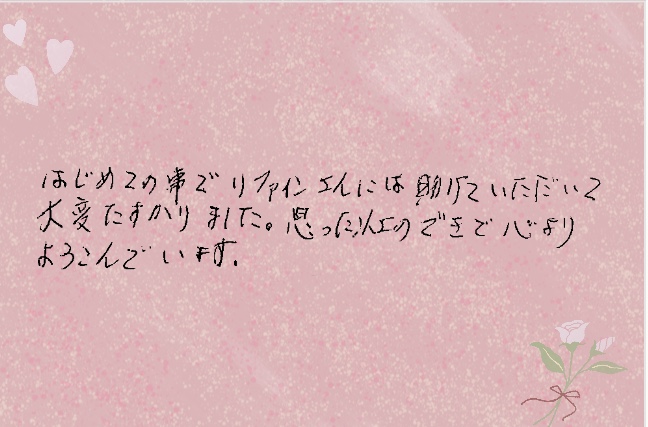 はじめての事でリファインさんには助けていただいて
大変たすかりました。思った以上のできで心より
よろこんでいます。